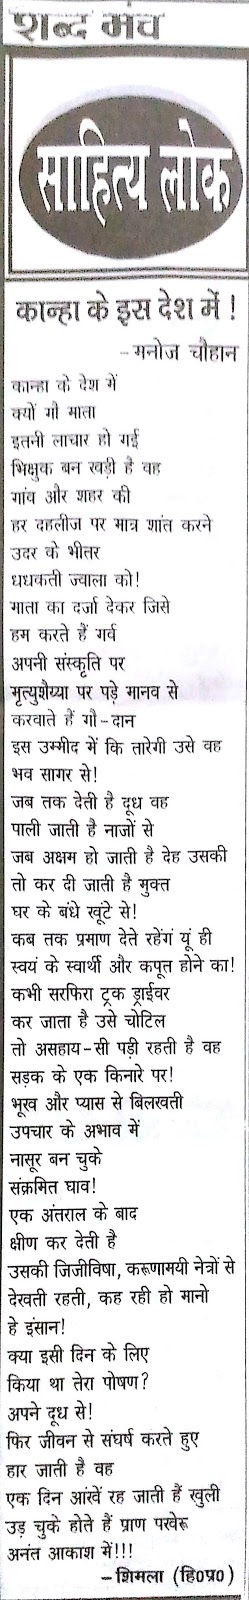 शब्द मंच
साहित्य लोक
कान्हा के इस देश में !
-मनोज चौहान
कान्हा के देश में
क्यों गौ माता
इतनी लाचार हो गई
भिक्षुक बन खड़ी है वह
गांव और शहर की
हर दहलीज पर मात्र शांत करने
उदर के भीतर
धधकती ज्वाला को!
माता का दर्जा देकर जिसे
हम करते हैं गर्व
अपनी संस्कृति पर
मृत्युशैय्या पर पड़े मानव से
करवाते हैं गौ-दान
इस उम्मीद में कि तारेगी उसे वह
भव सागर से!
जब तक देती है दूध वह
पाली जाती है नाजों से
जब अक्षम हो जाती है देह उसकी
तो कर दी जाती है मुक्त
घर के बंधे खूंटे से!
कब तक प्रमाण देते रहेंगं यूं ही
स्वयं के स्वार्थी और कपूत होने का!
कभी सरफिरा ट्रक ड्राईवर
कर जाता है उसे चोटिल
तो असहाय-सी पड़ी रहती है वह
सड़क के एक किनारे पर!
भूख और प्यास से बिलखती
उपचार के अभाव में
नासूर बन चुके
संक्रमित घाव!
एक अंतराल के बाद
क्षीण कर देती है
उसकी जिजीविषा, करूणामयी नेत्रों से
देखती रहती, कह रही हो मानो
हे इंसान!
क्या इसी दिन के लिए
किया था तेरा पोषण?
अपने दूध से!
फिर जीवन से संघर्ष करते हुए
हार जाती है वह
एक दिन आंखें रह जाती हैं खुली
उड़ चुके होते हैं प्राण पखेरू
अनंत आकाश में!!!
-शिमला (हि0प्र0)